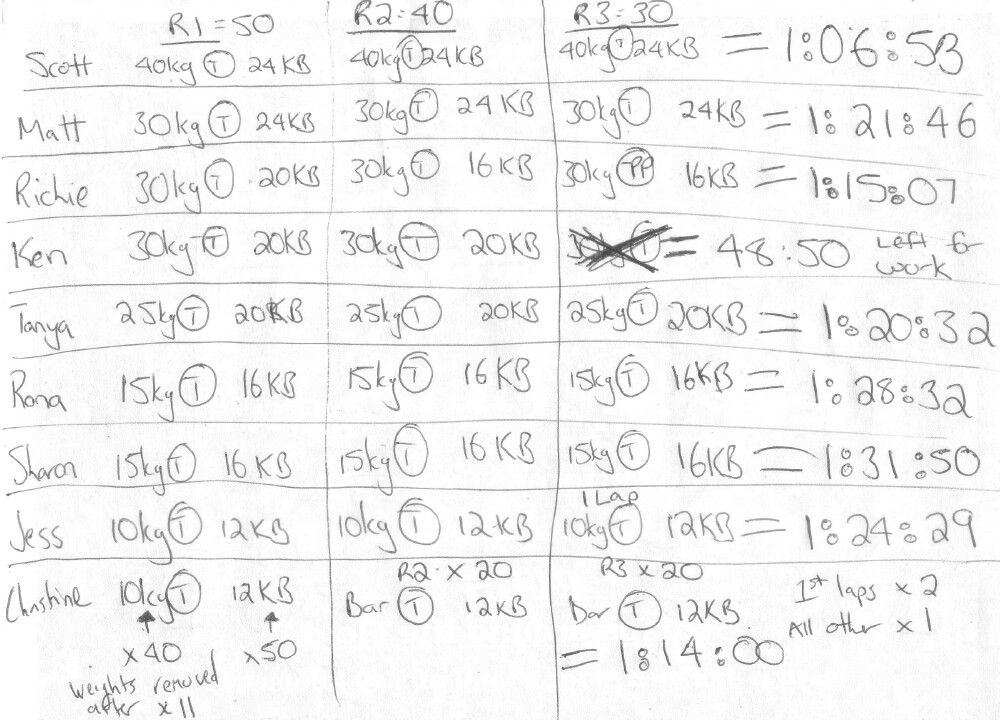 R1 = 50 R2 = 40 R3 = 30
Scott 40kg T 24KB 40kg T 24KB 40kg T 24KB = 1:06:53
Matt 30kg T 24KB 30kg T 24KB 30kg T 24KB = 1:21:46
Richie 30kg T 20KB 30kg T 16KB 30kg PP 16KB = 1:15:07
Ken 30kg T 20KB 30kg T 20KB = 48:50 Left for
work
Tanya 25kg T 20KB 25kg T 20KB 25kg T 20KB = 1:20:32
Rona 15kg T 16KB 15kg T 16KB 15kg T 16KB = 1:28:32
Sharon 15kg T 16KB 15kg T 16KB 15kg T 16KB = 1:31:50
1 Lap
Jess 10kg T 12KB 10kg T 12KB 10kg T 12KB = 1:24:29
R2 x 20 R3 x 20
Christine 10kg T 12KB Bar T 12KB Bar T 12KB 1st laps x 2
All other x 1
x40 x50 = 1:14:00
weights removed
after x11